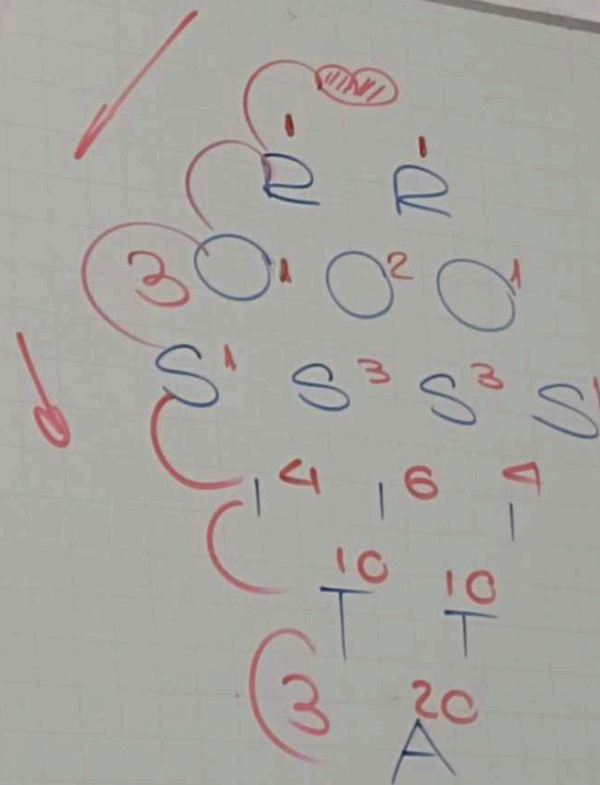 1 1
R R
3 O 1 O 2 O 1
S 1 S 3 S 3 S 1
I 4 I 6 I 4
T 10 T 10
3 A 20